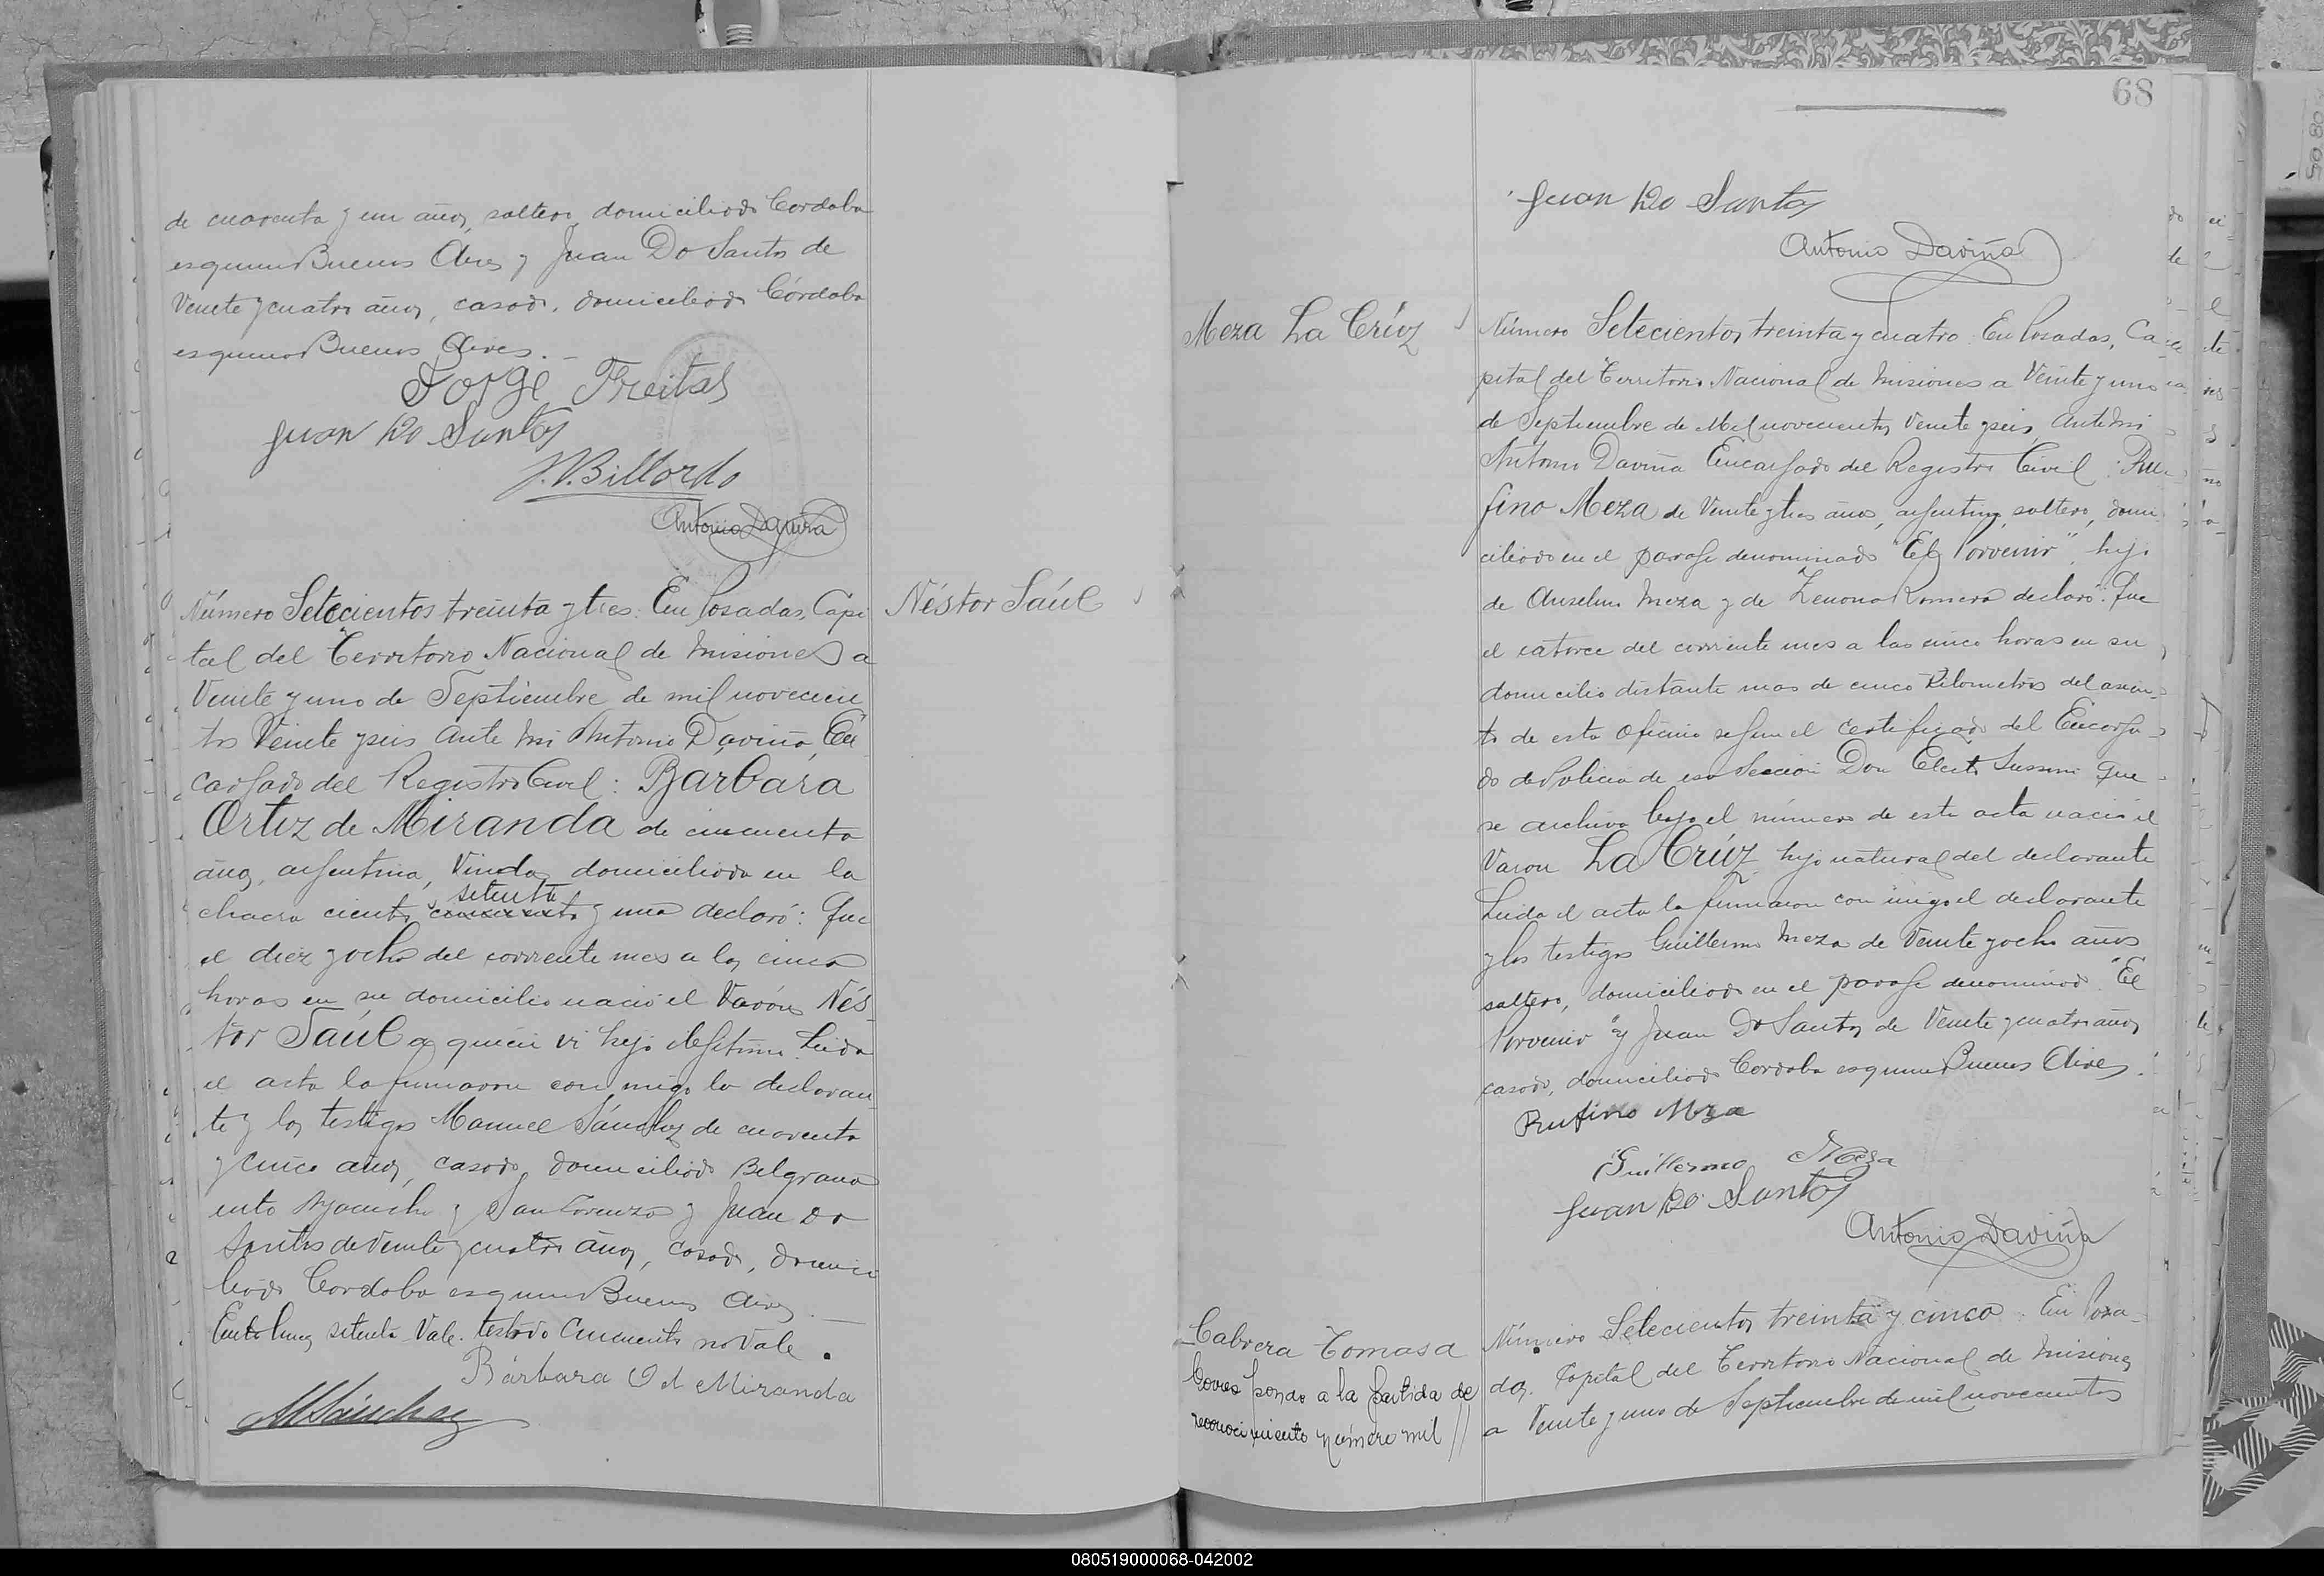 de cuarenta y un años, soltero, domiciliado Cordoba
esquina Buenos Aires y Juan Do Santos de
Veinte y cuatro años, casado, domiciliado Córdoba
esquina Buenos Aires.-
Jorge Freitas
Juan Do Santos
J.V. Billordo
Antonio Daviña
Número Setecientos treinta y tres. En Posadas, Capi
tal del Territorio Nacional de Misiones a
Veinte y uno de Septiembre de mil novecien
tos Veinte y seis Ante Mi Antonio Daviña, En
cargado del Registro Civil: Bárbara
Ortiz de Miranda de cincuenta
años, argentina, Viuda, domiciliada en la
setenta
chacra ciento cincuenta y una declaró: Que
el diez y ocho del corriente mes a las cinco
horas en su domicilio nació el Varón Nés-
tor Saúl a quien vi hijo ilegítimo. Leida
el acta la firmaron con migo la declaran
te y los testigos Manuel Sánchez de cuarenta
y cinco años, casado, domiciliado Belgrano
entre Ayacucho y San Lorenzo y Juan Do
Santos de Veinte y cuatro años, casado, domici
liado Cordoba esquina Buenos Aires.-
Entre linea setenta Vale. testado Cincuenta no Vale.
Bárbara O de Miranda
M Sánchez
Néstor Saúl
68
Juan Do Santos
Antonio Daviña
Meza La Crúz
Número Setecientos treinta y cuatro. En Posadas, Ca
pital del Territorio Nacional de Misiones a Veinte y uno
de Septiembre de Mil novecientos Veinte y seis, Ante Mi
Antonio Daviña Encargado del Registro Civil: Ru-
fino Meza de Veinte y tres años, argentino, soltero, domi
ciliado en el paraje denominado "El Porvenir", hijo
de Anselmo Meza y de Zenona Romero declaró: Que
el catorce del corriente mes a las cinco horas en su
domicilio distante mas de cinco Kilometros del asien-
to de esta Oficina segun el certificado del Encarga-
do de Policia de esa Seccion Don Electo Sussini que
se archiva bajo el número de esta acta nació el
Varon La Crúz hijo natural del declarante
Leida el acta la firmaron con migo el declarante
y los testigos Guillermo Meza de Veinte y ocho años
soltero, domiciliado en el paraje denominado "El
Porvenir" y Juan Do Santos de Veinte y cuatro años
casado, domiciliado Cordoba esquina Buenos Aires.
Rufino Meza
Guillermo Meza
Juan Do Santos
Antonio Daviña
Cabrera Tomasa
Corresponde a la partida de
reconocimiento número mil //
Número Setecientos treinta y cinco. En Posa-
das. Capital del Territorio Nacional de Misiones
a Veinte y uno de Septiembre de mil novecientos
080519000068-042002